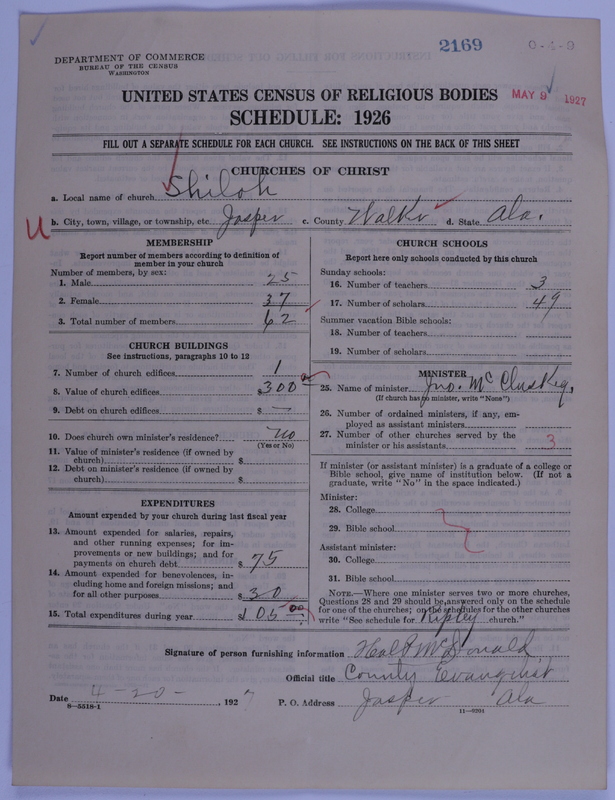 2169
0-4-9
DEPARTMENT OF COMMERCE
BUREAU OF THE CENSUS
WASHINGTON
UNITED STATES CENSUS OF RELIGIOUS BODIES
MAY 9 1927
SCHEDULE: 1926
FILL OUT A SEPARATE SCHEDULE FOR EACH CHURCH. SEE INSTRUCTIONS ON THE BACK OF THIS SHEET
CHURCHES OF CHRIST
a. Local name of church Shiloh
U
b. City, town, village, or township, etc. Jasper c. County Walker d. State Ala.
MEMBERSHIP
Report number of members according to definition of
member in your church
Number of members, by sex:
1. Male 25
2. Female 37
3. Total number of members 62
CHURCH BUILDINGS
See instructions, paragraphs 10 to 12
7. Number of church edifices 1
8. Value of church edifices $300 00
9. Debt on church edifices $ —
10. Does church own minister's residence? no
(Yes or No)
11. Value of minister's residence (if owned by
church) $
12. Debt on minister's residence (if owned by
church) $
EXPENDITURES
Amount expended by your church during last fiscal year
13. Amount expended for salaries, repairs,
and other running expenses; for im-
provements or new buildings; and for
payments on church debt $ 75
14. Amount expended for benevolences, in-
cluding home and foreign missions; and
for all other purposes $ 30
15. Total expenditures during year $ 105 00
CHURCH SCHOOLS
Report here only schools conducted by this church
Sunday schools:
16. Number of teachers 3
17. Number of scholars 49
Summer vacation Bible schools:
18. Number of teachers
19. Number of scholars
MINISTER
25. Name of minister Jno. McCluskey,
(If church has no minister, write "None")
26. Number of ordained ministers, if any, em-
ployed as assistant ministers
27. Number of other churches served by the
minister or his assistants 3
If minister (or assistant minister) is a graduate of a college or
Bible school, give name of institution below. (If not a
graduate, write "No" in the space indicated.)
Minister:
28. College
29. Bible school
Assistant minister:
30. College
31. Bible school
NOTE.—Where one minister serves two or more churches,
Questions 28 and 29 should be answered only on the schedule
for one of the churches; on the schedules for the other churches
write "See schedule for Ripley church."
Signature of person furnishing information McDonald
Official title County Evangelist
Date 4-20-, 1927 P. O. Address Jasper Ala
8—5518-1
11—9291